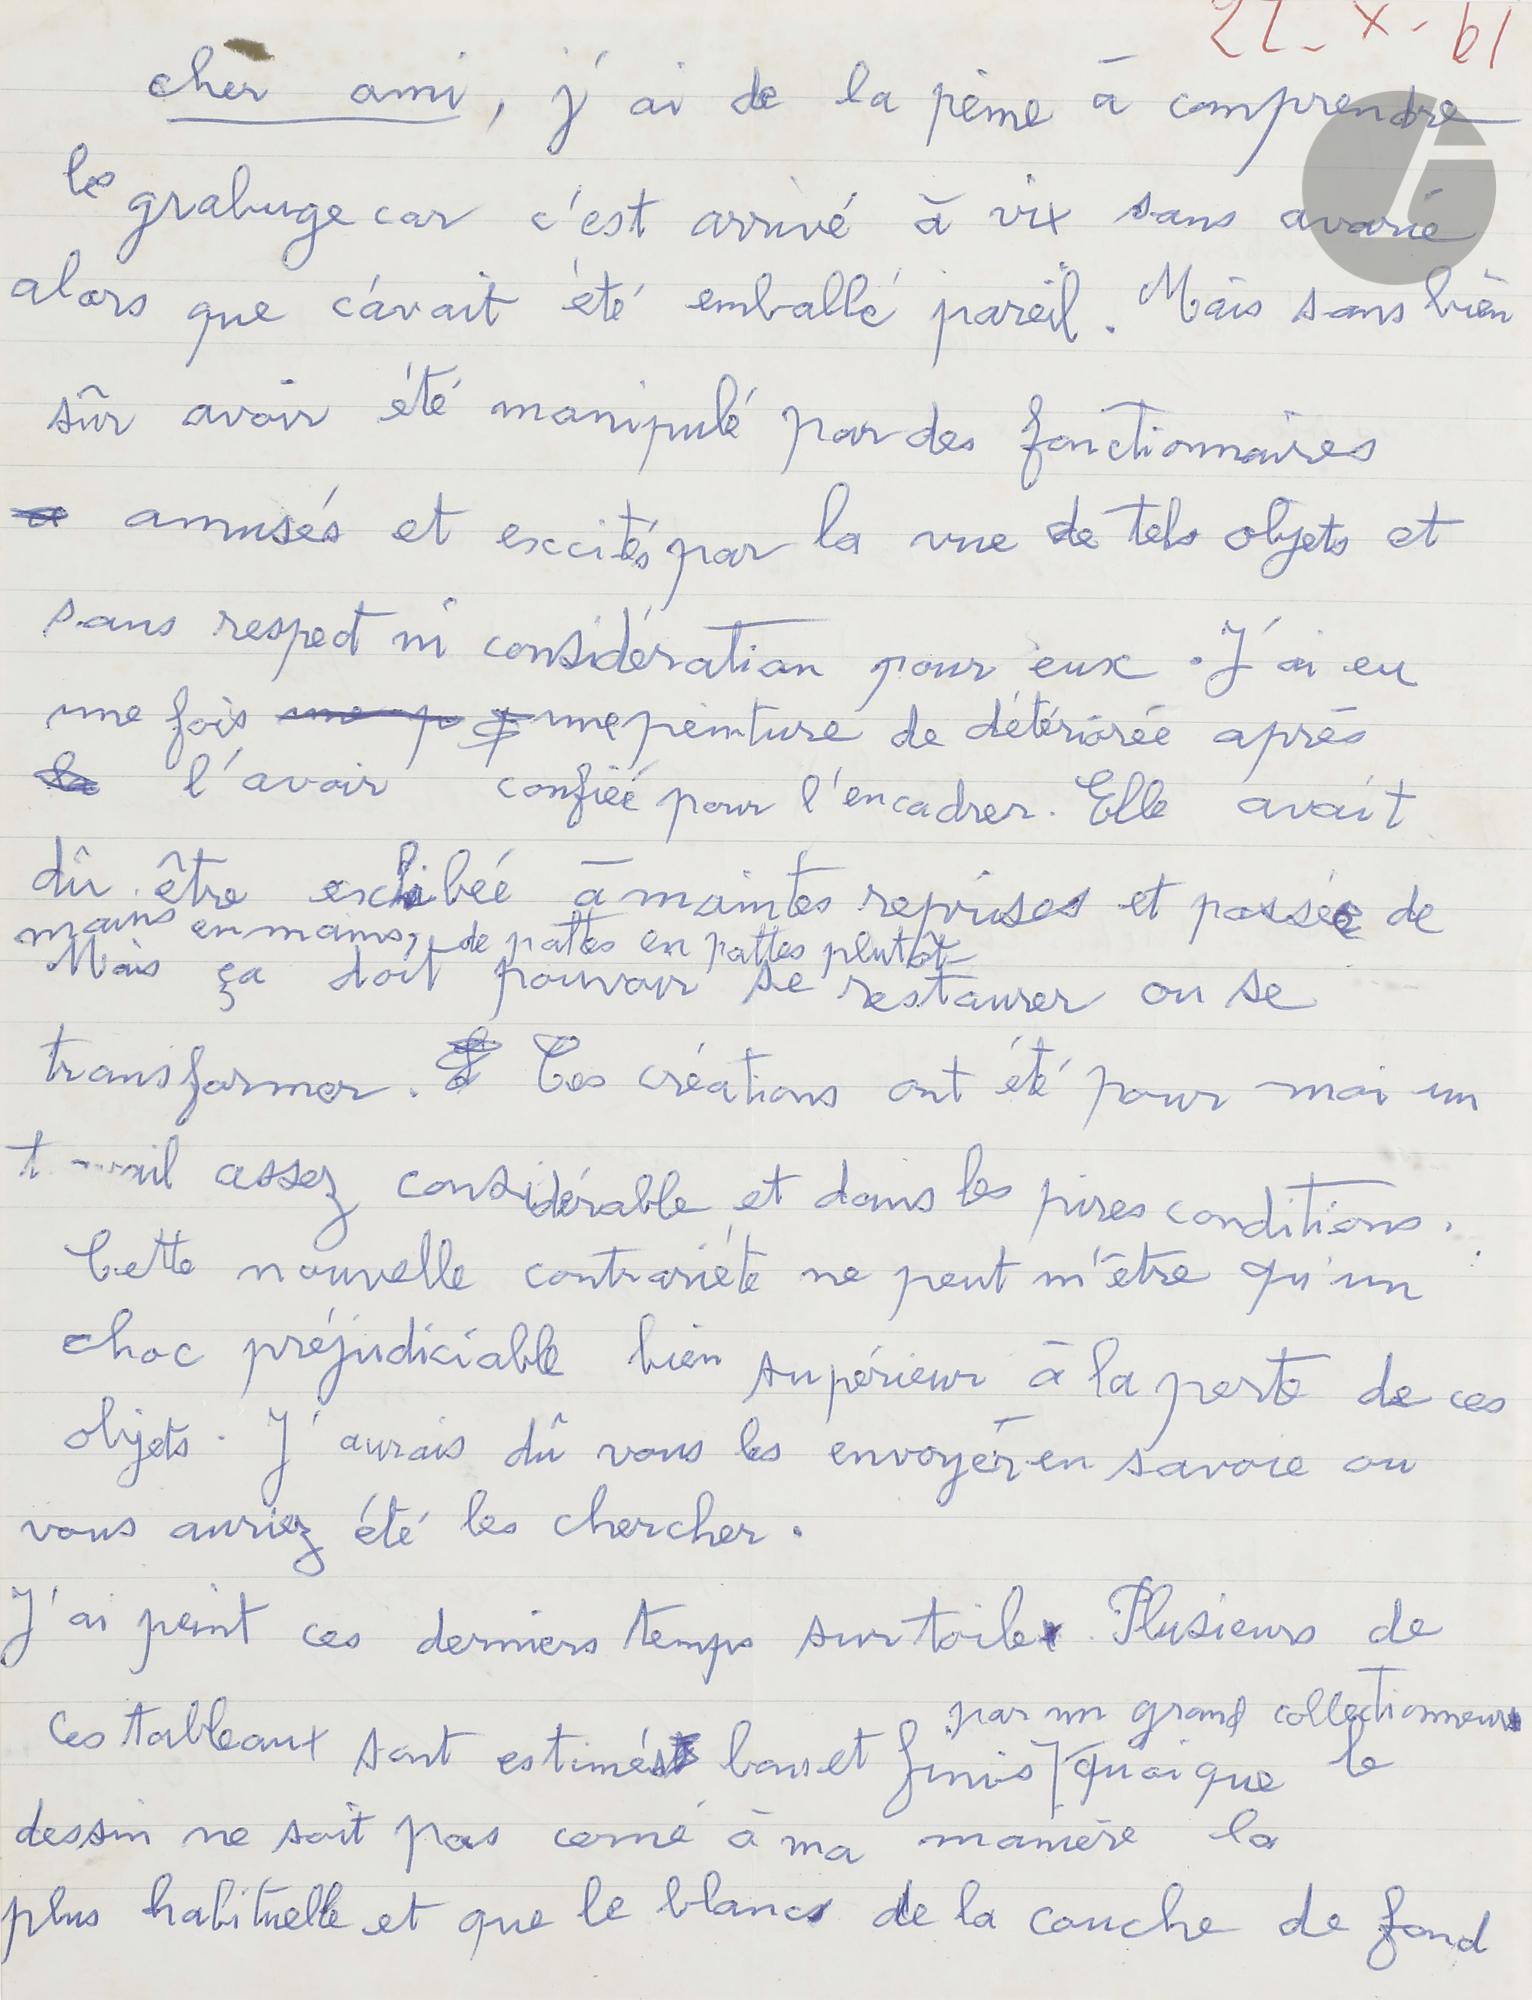 22-X-61
cher ami, j'ai de la peine à comprendre
les grabuge car c'est arrivé à vix sans avarie
alors que c'avait été emballé pareil. Mais sans bien
sûr avoir été manipulé par des fonctionnaires
amusés et excités par la vue de tels objets et
sans respect ni considération pour eux. J'ai eu
une fois une peinture de détériorée après
l'avoir confiée pour l'encadrer. Elle avait
dû être exhibée à maintes reprises et passée de
mains en mains, de pattes en pattes plutôt
Mais ça doit pouvoir se restaurer ou se
transformer. Ces créations ont été pour moi un
assez considérable et dans les pires conditions.
Cette nouvelle contrariété ne peut m'être qu'un
choc préjudiciable bien supérieur à la perte de ces
objets. J'aurais dû vous les envoyer en savoie ou
vous auriez été les chercher.
J'ai peint ces derniers temps sur toile. Plusieurs de
par un grand collectionneur
ces tableaux sont estimés bons et finis quoique le
dessin ne soit pas cerné à ma manière la
plus habituelle et que le blanc de la couche de fond